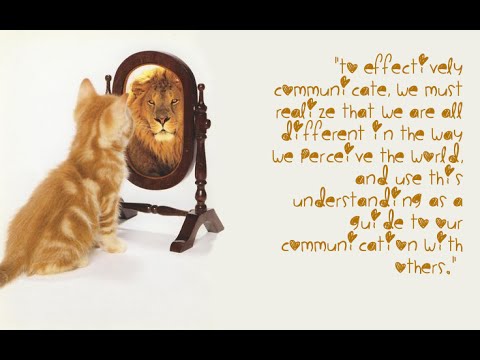 "to effectively
communicate, we must
realize that we are all
different in the way
we perceive the world,
and use this
understanding as a
guide to our
communication with
others."